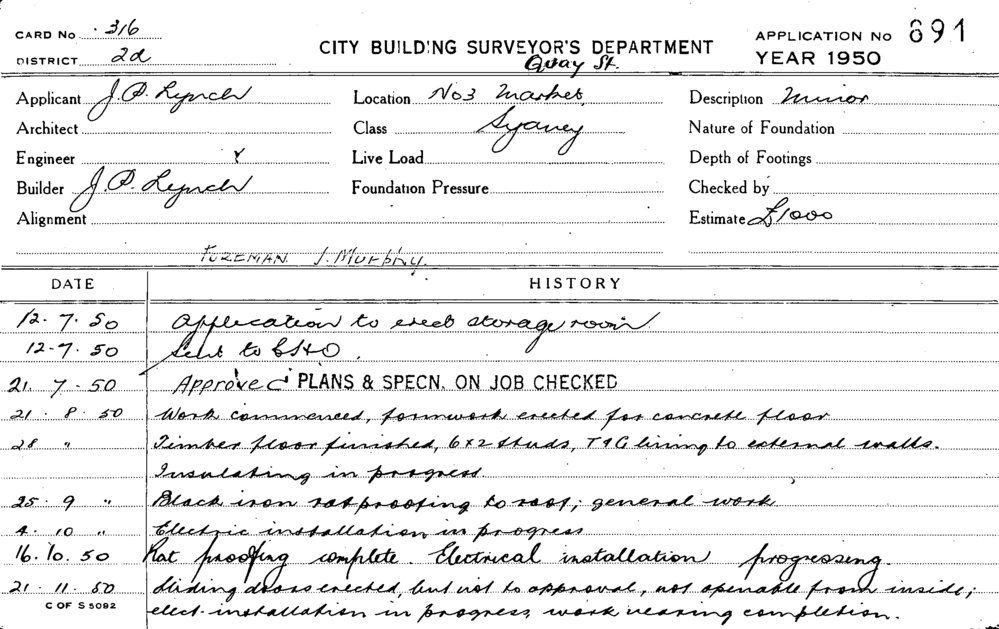 CARD No 316
DISTRICT 2d
CITY BUILDING SURVEYOR'S DEPARTMENT
Quay St.
APPLICATION No 691
YEAR 1950
Applicant J. P. Lynch
Location No 3 Market,
Description Minor
Architect
Class Sydney
Nature of Foundation
Engineer
Live Load
Depth of Footings
Builder J. P. Lynch
Foundation Pressure
Checked by
Alignment
Estimate £1000
FOREMAN J. Murphy.
DATE HISTORY
12. 7. 50 Application to erect storage room
12-7. 50 Sent to CHO.
21. 7. 50 Approved PLANS & SPECN. ON JOB CHECKED
21. 8. 50 Work commenced, formwork erected for concrete floor
28 " Timber floor finished, 6x2 studs, T&G lining to external walls.
Insulating in progress
25. 9 " Black iron ratproofing to roof; general work
4. 10 " Electric installation in progress
16. 10. 50 Rat proofing complete. Electrical installation progressing.
21. 11. 50 Sliding doors erected, but not to approval, not openable from inside;
C OF S 5092
elect. installation in progress, work nearing completion.